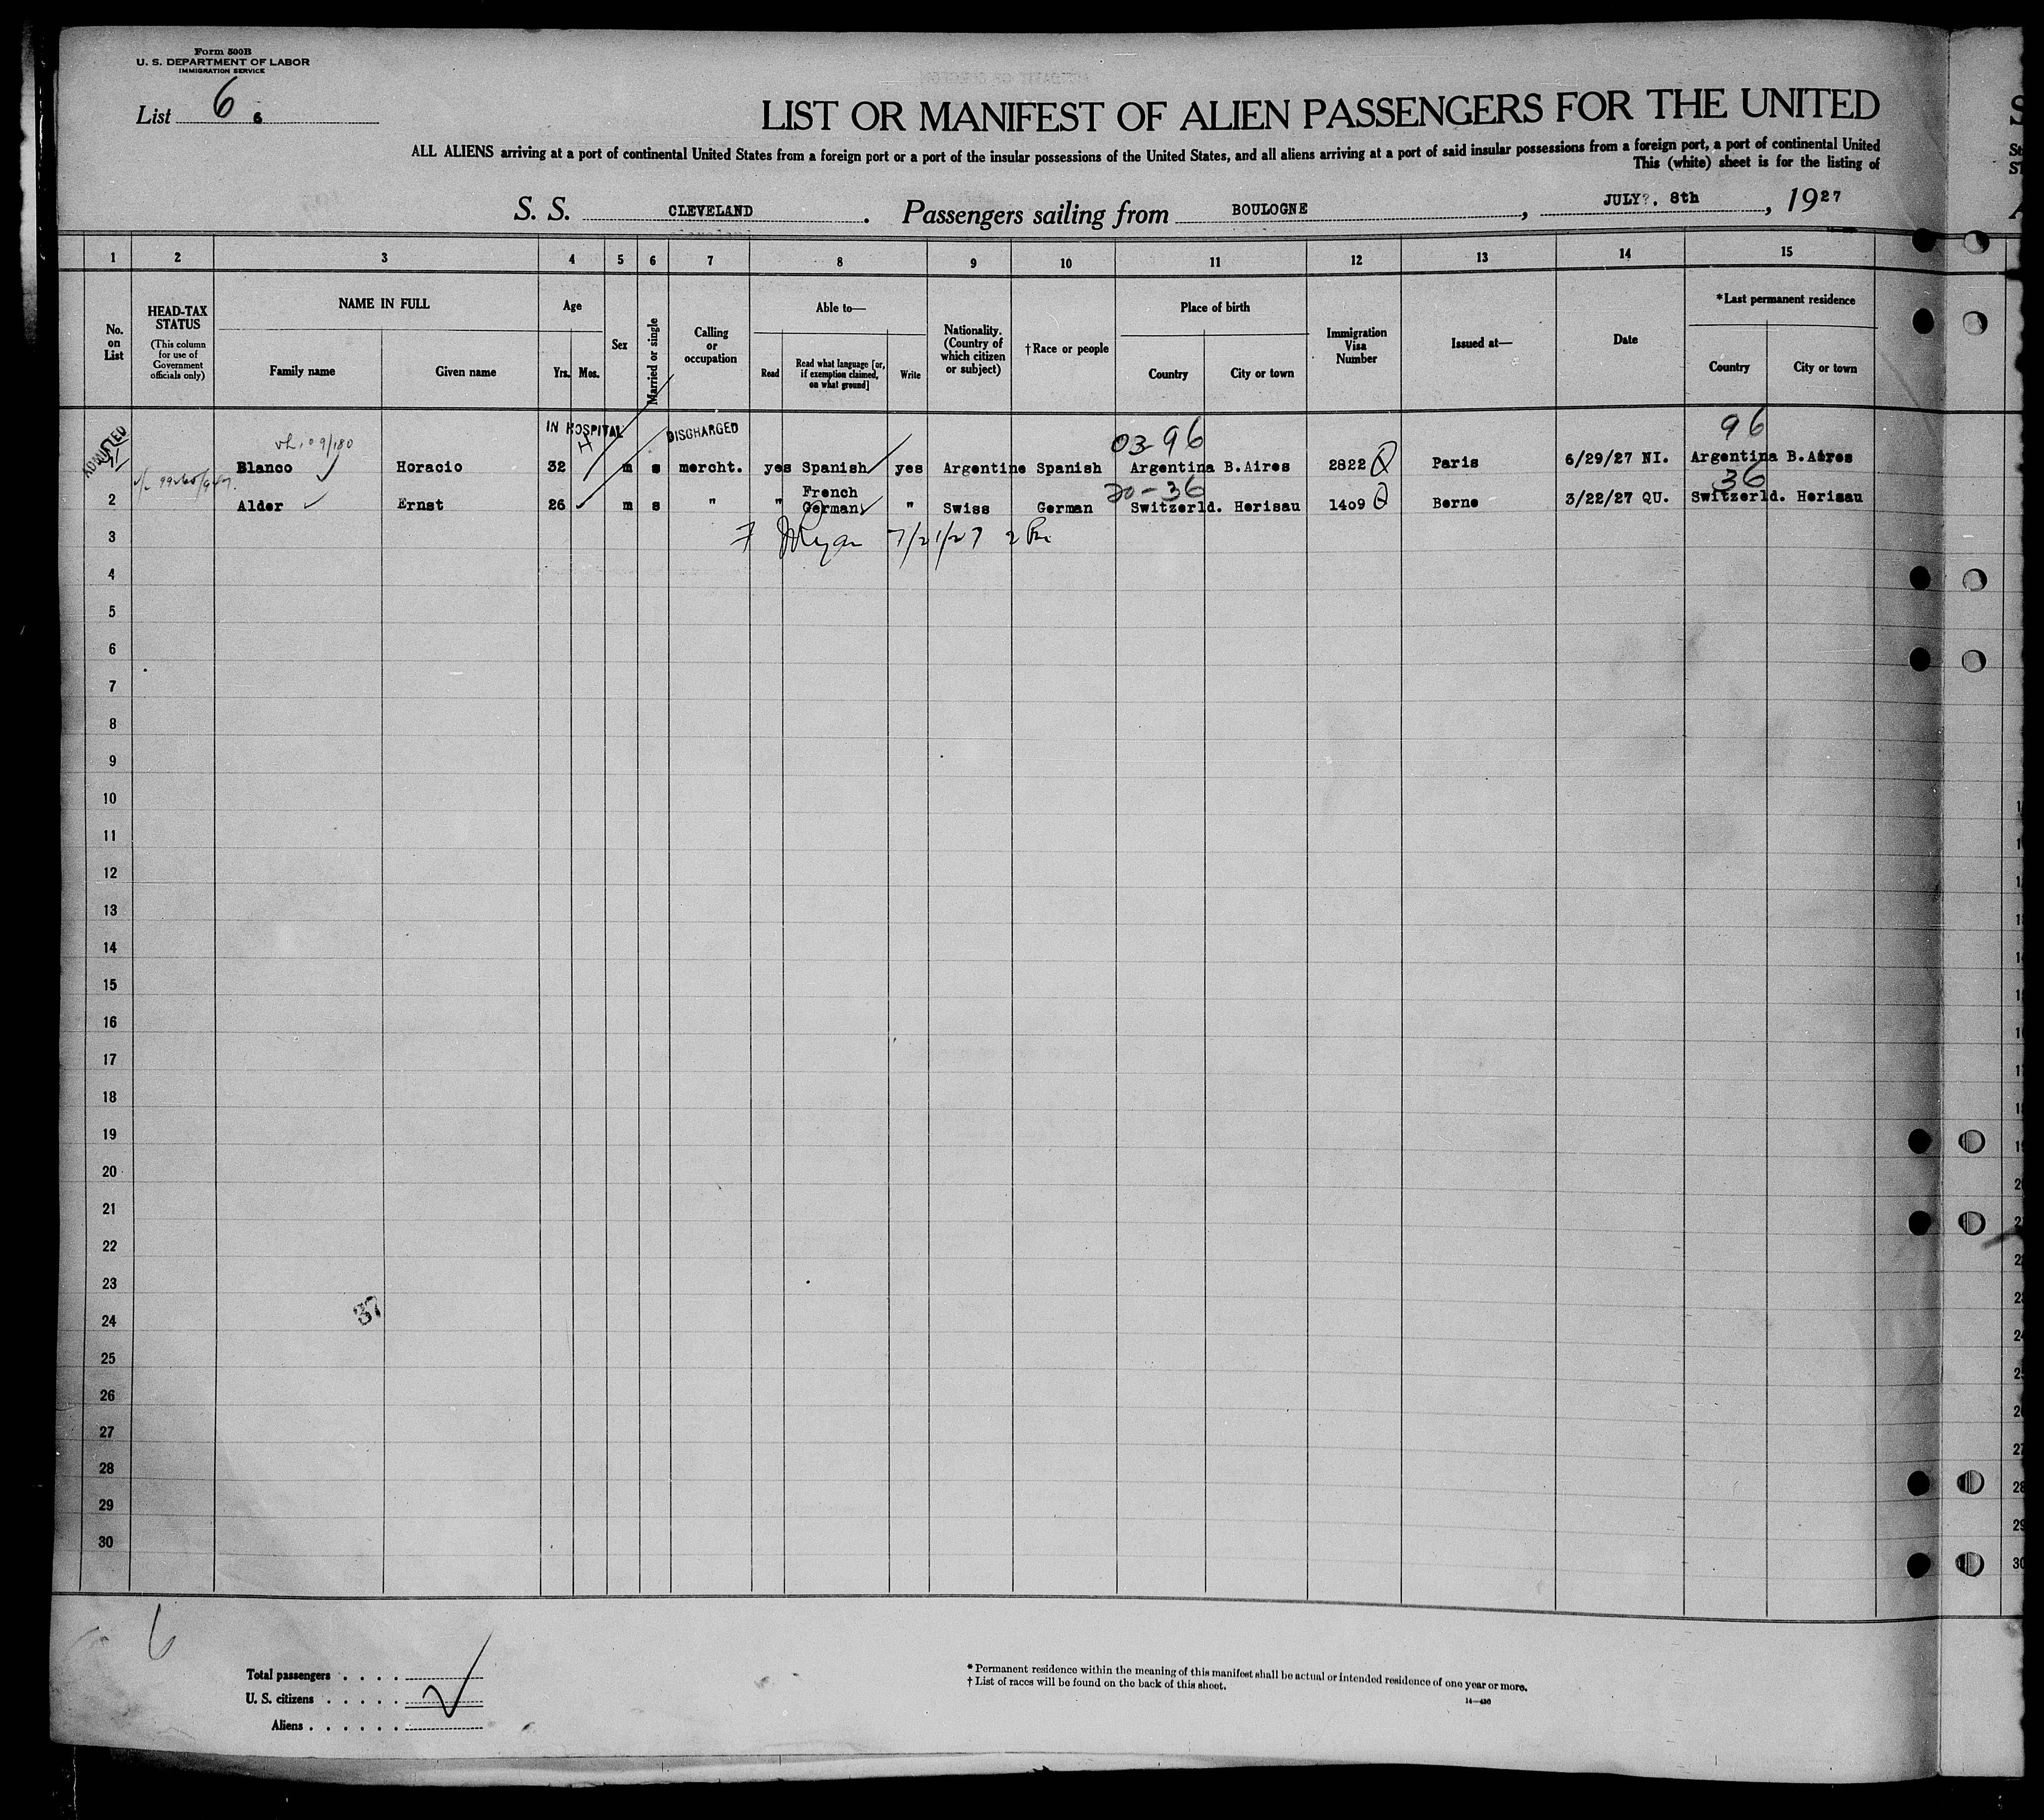 Form 500B
U. S. DEPARTMENT OF LABOR
IMMIGRATION SERVICE
List 6 6
LIST OR MANIFEST OF ALIEN PASSENGERS FOR THE UNITED
ALL ALIENS arriving at a port of continental United States from a foreign port or a port of the insular possessions of the United States, and all aliens arriving at a port of said insular possessions from a foreign port, a port of continental United
This (white) sheet is for the listing of
S. S. CLEVELAND. Passengers sailing from BOULOGNE, JULY?. 8th, 1927
1 2 3 4 5 6 7 8 9 10 11 12 13 14 15
No. on List
HEAD-TAX STATUS
(This column for use of Government officials only)
NAME IN FULL
Family name Given name
Age
Yrs. Mos.
Sex
Married or single
Calling or occupation
Able to—
Read
Read what language [or, if exemption claimed, on what ground]
Write
Nationality. (Country of which citizen or subject)
†Race or people
Place of birth
Country City or town
Immigration Visa Number
Issued at—
Date
*Last permanent residence
Country City or town
ADMITTED
IN HOSPITAL DISCHARGED 03-96 96
1 Blanco Horacio 32 m s mercht. yes Spanish yes Argentine Spanish Argentina B.Aires 2822 Paris 6/29/27 NI. Argentina B.Aires
French 20-36 36
2 Alder Ernst 26 m s " " German " Swiss German Switzerld. Herisau 1409 Berne 3/22/27 QU. Switzerld. Herisau
3 Ryan 7/21/27
4
5
6
7
8
9
10
11
12
13
14
15
16
17
18
19
20
21
22
23
37
24
25
26
27
28
29
30
6
Total passengers . . . .
U. S. citizens . . . . .
Aliens . . . . . .
* Permanent residence within the meaning of this manifest shall be actual or intended residence of one year or more.
† List of races will be found on the back of this sheet.
14—430